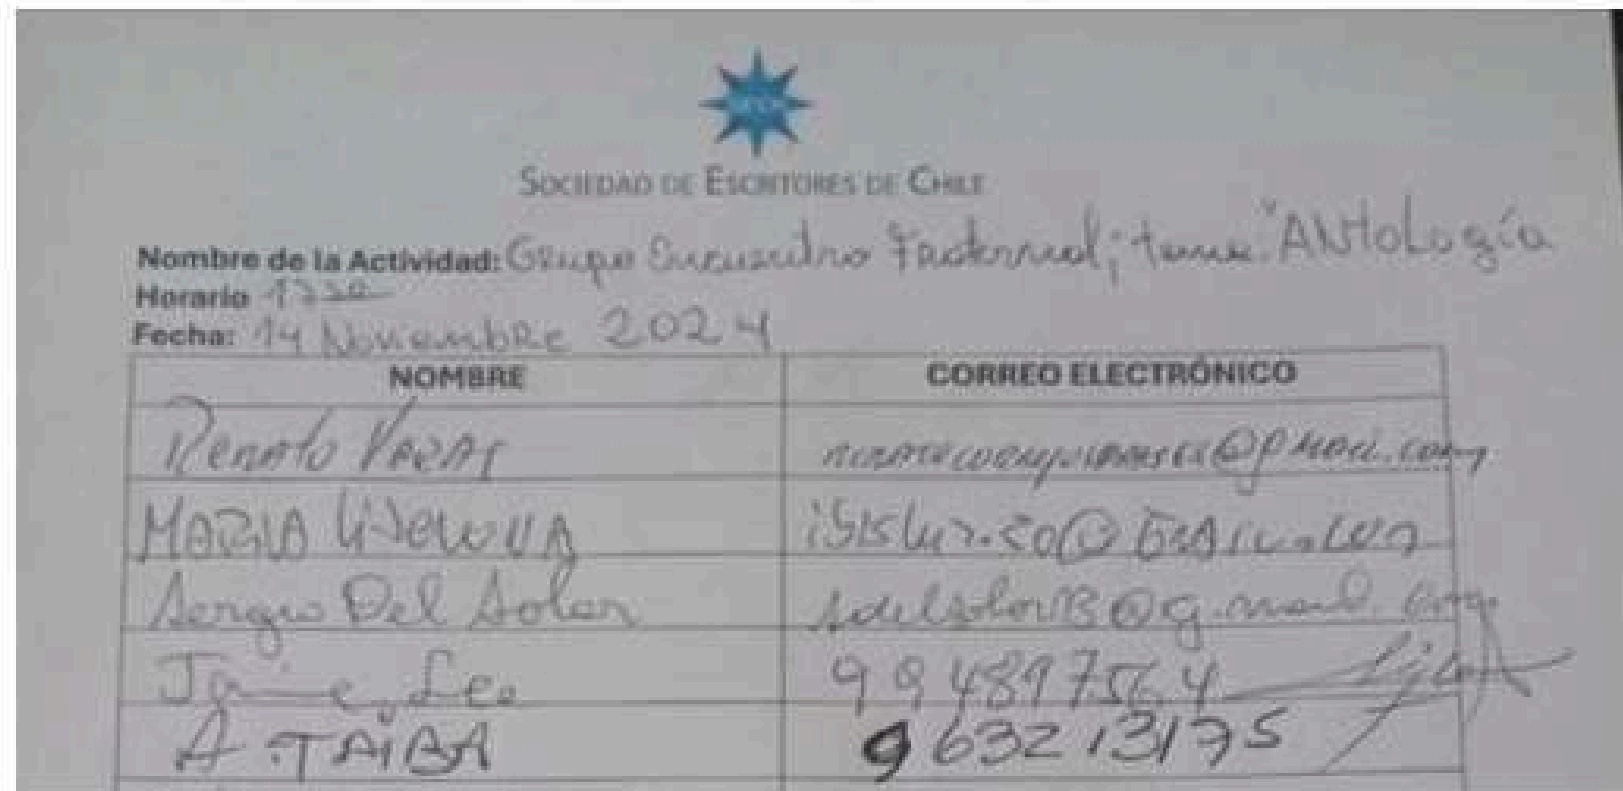 SOCIEDAD DE ESCRITORES DE CHILE
Nombre de la Actividad: Grupo Encuentro Fraternal; tema: "ANtología
Horario 1730
Fecha: 14 Noviembre 2024
NOMBRE CORREO ELECTRÓNICO
Renato VARAS @gmail.com
MARIA
Sergio Del Solar sdelsolar13@g.mail.com
Jaime Leo 994897564
A. TAIBA 963213175